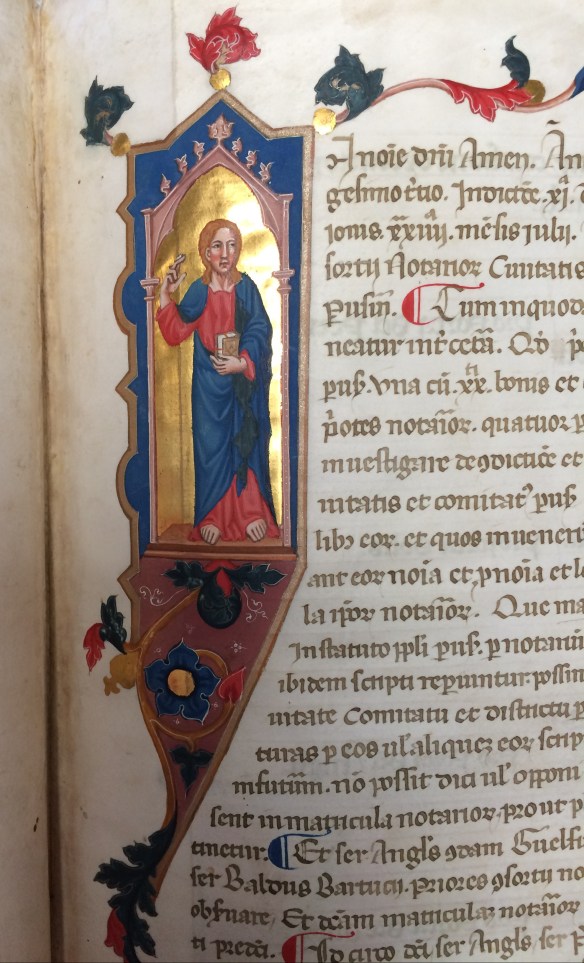 Jn noīe dn̄i Amen. Añ
gesimo t̄tio. Indictōe. xj.
ionis. xxiiij. mēsis iulij.
sortij Notarior Ciuitatis
ꝑusin. Cum in quod
neatur int̄ cet̄a. Qđ
ꝑuß. vna cū. xx. bonis et
notaīor. quatuor
inuestigare de ↄdictōe et
uitatis et comitat᾽ ꝑuß
libꝫ eor. et quos inuenerī
ant eor noīa et ꝓnoīa et
la ip̄or notaīor. Que ma
In statuto pp̄li ꝑuß. ꝑ notariu
ibidem scripti reꝑiuntur. possin
uitate Comitatu et districtu
turas ꝑ eos ul̄ aliquez eor scrip
in futurum. nō possit dici ul̄ opponi
sent in matricula notarior. prout
tinetur. Et ser Angl̄s ↄdam Guelfu
ser Baldus Bartucij. Priores ↄsortij no
obseruare, Et dc̄am matriculaꝫ notaīor
ti predc̄i. Idcirco dc̄i ser Angl̄s. ser